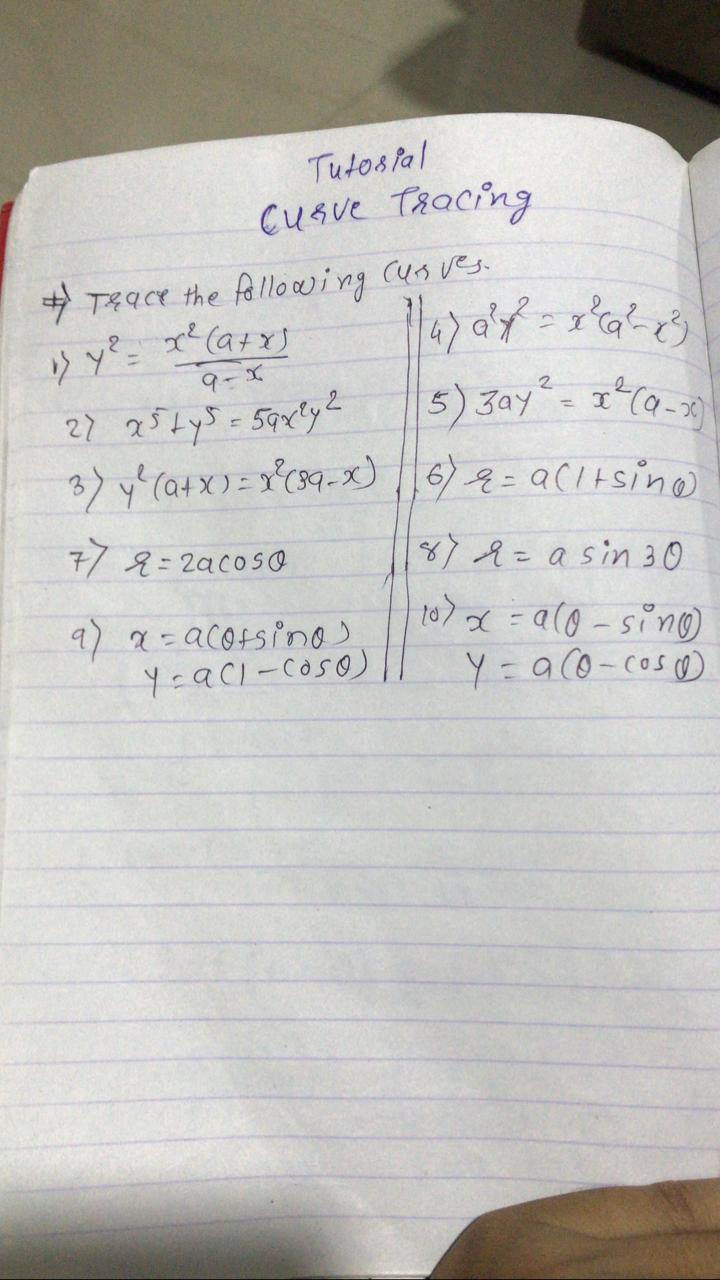 Tutorial
Curve Tracing
#) Trace the following curves.
1) y² = x²(a+x) / a-x
2) x⁵+y⁵ = 5ax²y²
3) y²(a+x) = x²(3a-x)
7) r = 2acosθ
9) x = a(θ+sinθ)
y = a(1-cosθ)
4) a²y² = x²(a²-x²)
5) 3ay² = x²(a-x)
6) r = a(1+sinθ)
8) r = a sin3θ
10) x = a(θ-sinθ)
y = a(θ-cosθ)